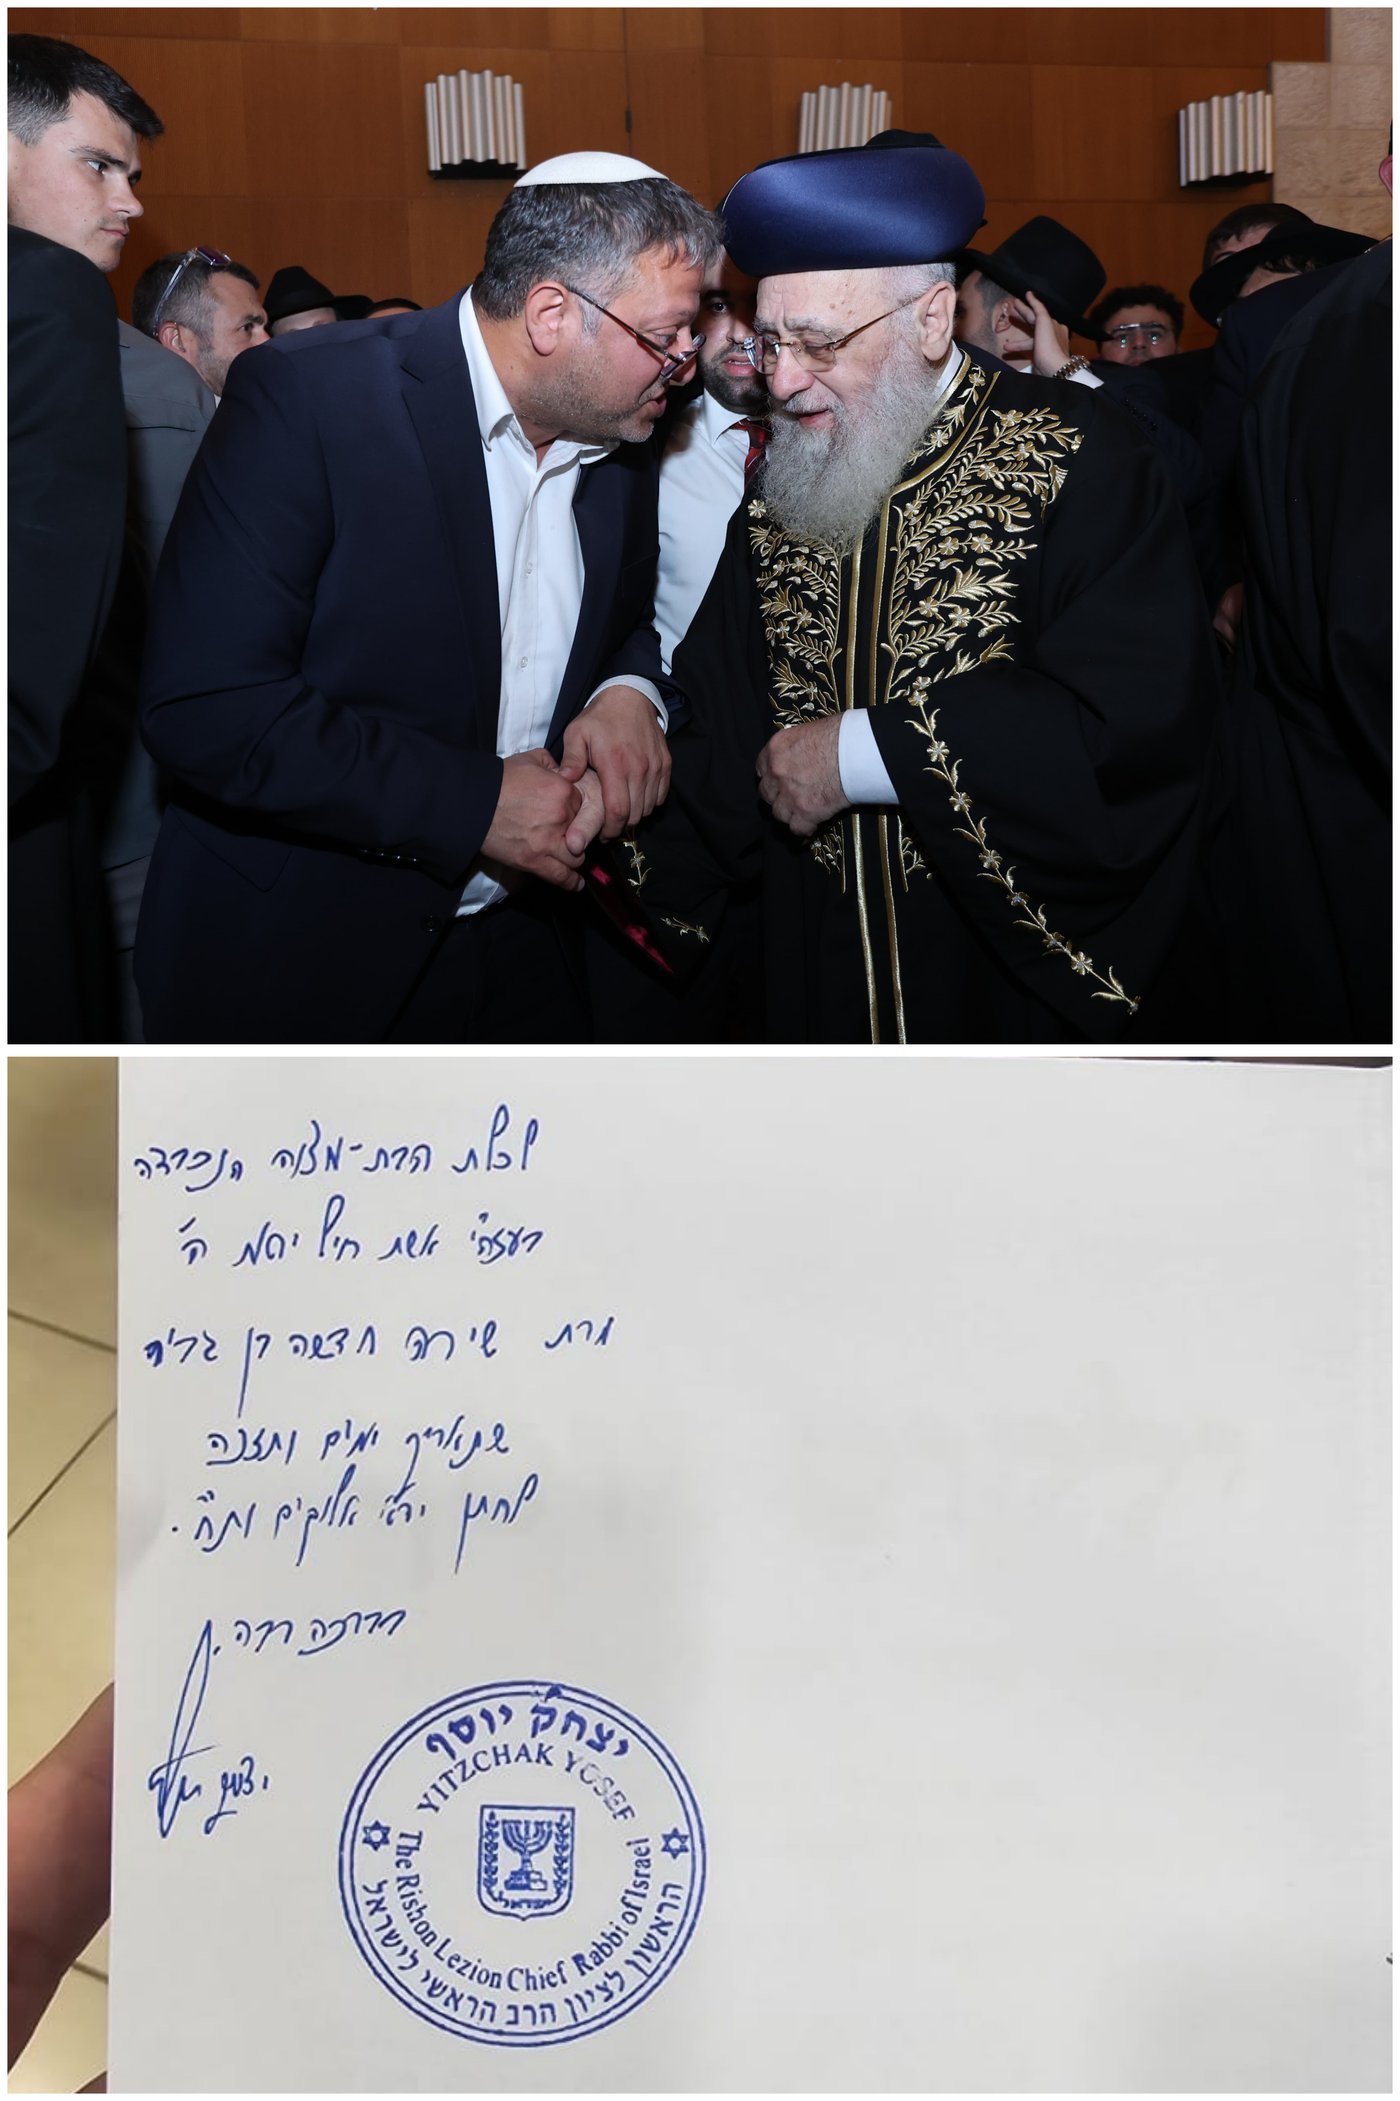 לכלת הבת-מצוה הנכבדה
בעזה"י אשת חיל יראת ה'
מרת שירה חדשה בן גביר
שתאריך ימים ותזכה
לחתן ירא אלוקים ות"ח.
בברכה רבה.
יצחק יוסף
יצחק יוסף
YITZCHAK YOSEF
ישראל
The Rishon Lezion Chief Rabbi of Israel
הראשון לציון הרב הראשי לישראל